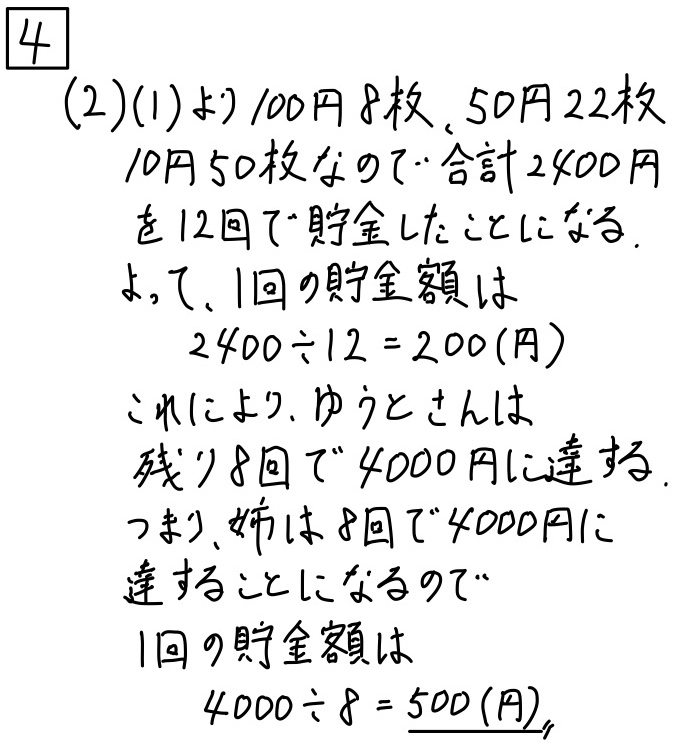 4
(2)(1)より100円8枚、50円22枚
10円50枚なので合計2400円
を12回で貯金したことになる.
よって、1回の貯金額は
2400÷12=200(円)
これにより、ゆうとさんは
残り8回で4000円に達する.
つまり、姉は8回で4000円に
達することになるので
1回の貯金額は
4000÷8=500(円)〃